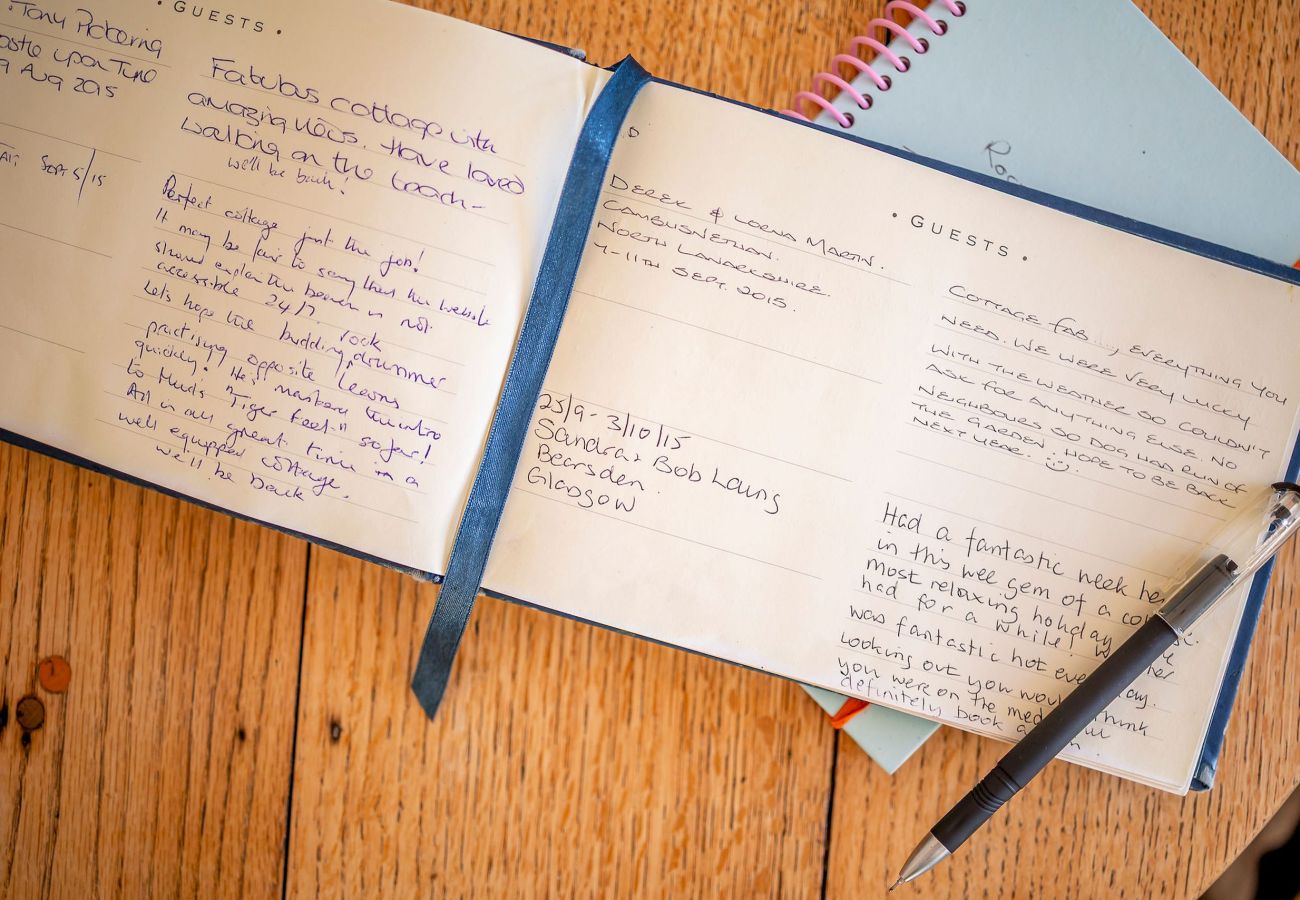 • GUESTS •
Tony Pickering
upon Tyne
9 Aug 2015
Sept 5/15
Fabulous cottage with
amazing views. Have loved
walking on the beach -
we'll be back!
Perfect cottage just the job!
It may be fair to say that the website
should explain the beach is not
accessible 24/7
Let's hope the budding rock drummer
practising opposite learns
quickly! He's mastered the intro
to Mud's "Tiger feet" so far!
All in all great time in a
well equipped cottage.
we'll be back
• GUESTS •
DEREK & LORNA MARTIN.
CAMBUSNETHAN.
NORTH LANARKSHIRE.
7-11TH SEPT. 2015.
COTTAGE FAB..., EVERYTHING YOU
NEED. WE WERE VERY LUCKY
WITH THE WEATHER SO COULDN'T
ASK FOR ANYTHING ELSE. NO
NEIGHBOURS SO DOG HAD RUN OF
THE GARDEN. HOPE TO BE BACK
NEXT YEAR.
25/9 - 3/10/15
Sandra + Bob Laing
Bearsden.
Glasgow
Had a fantastic week
in this wee gem of a
most relaxing holiday
had for a while!
was fantastic hot
Looking out you would think
you were on the med
definitely book